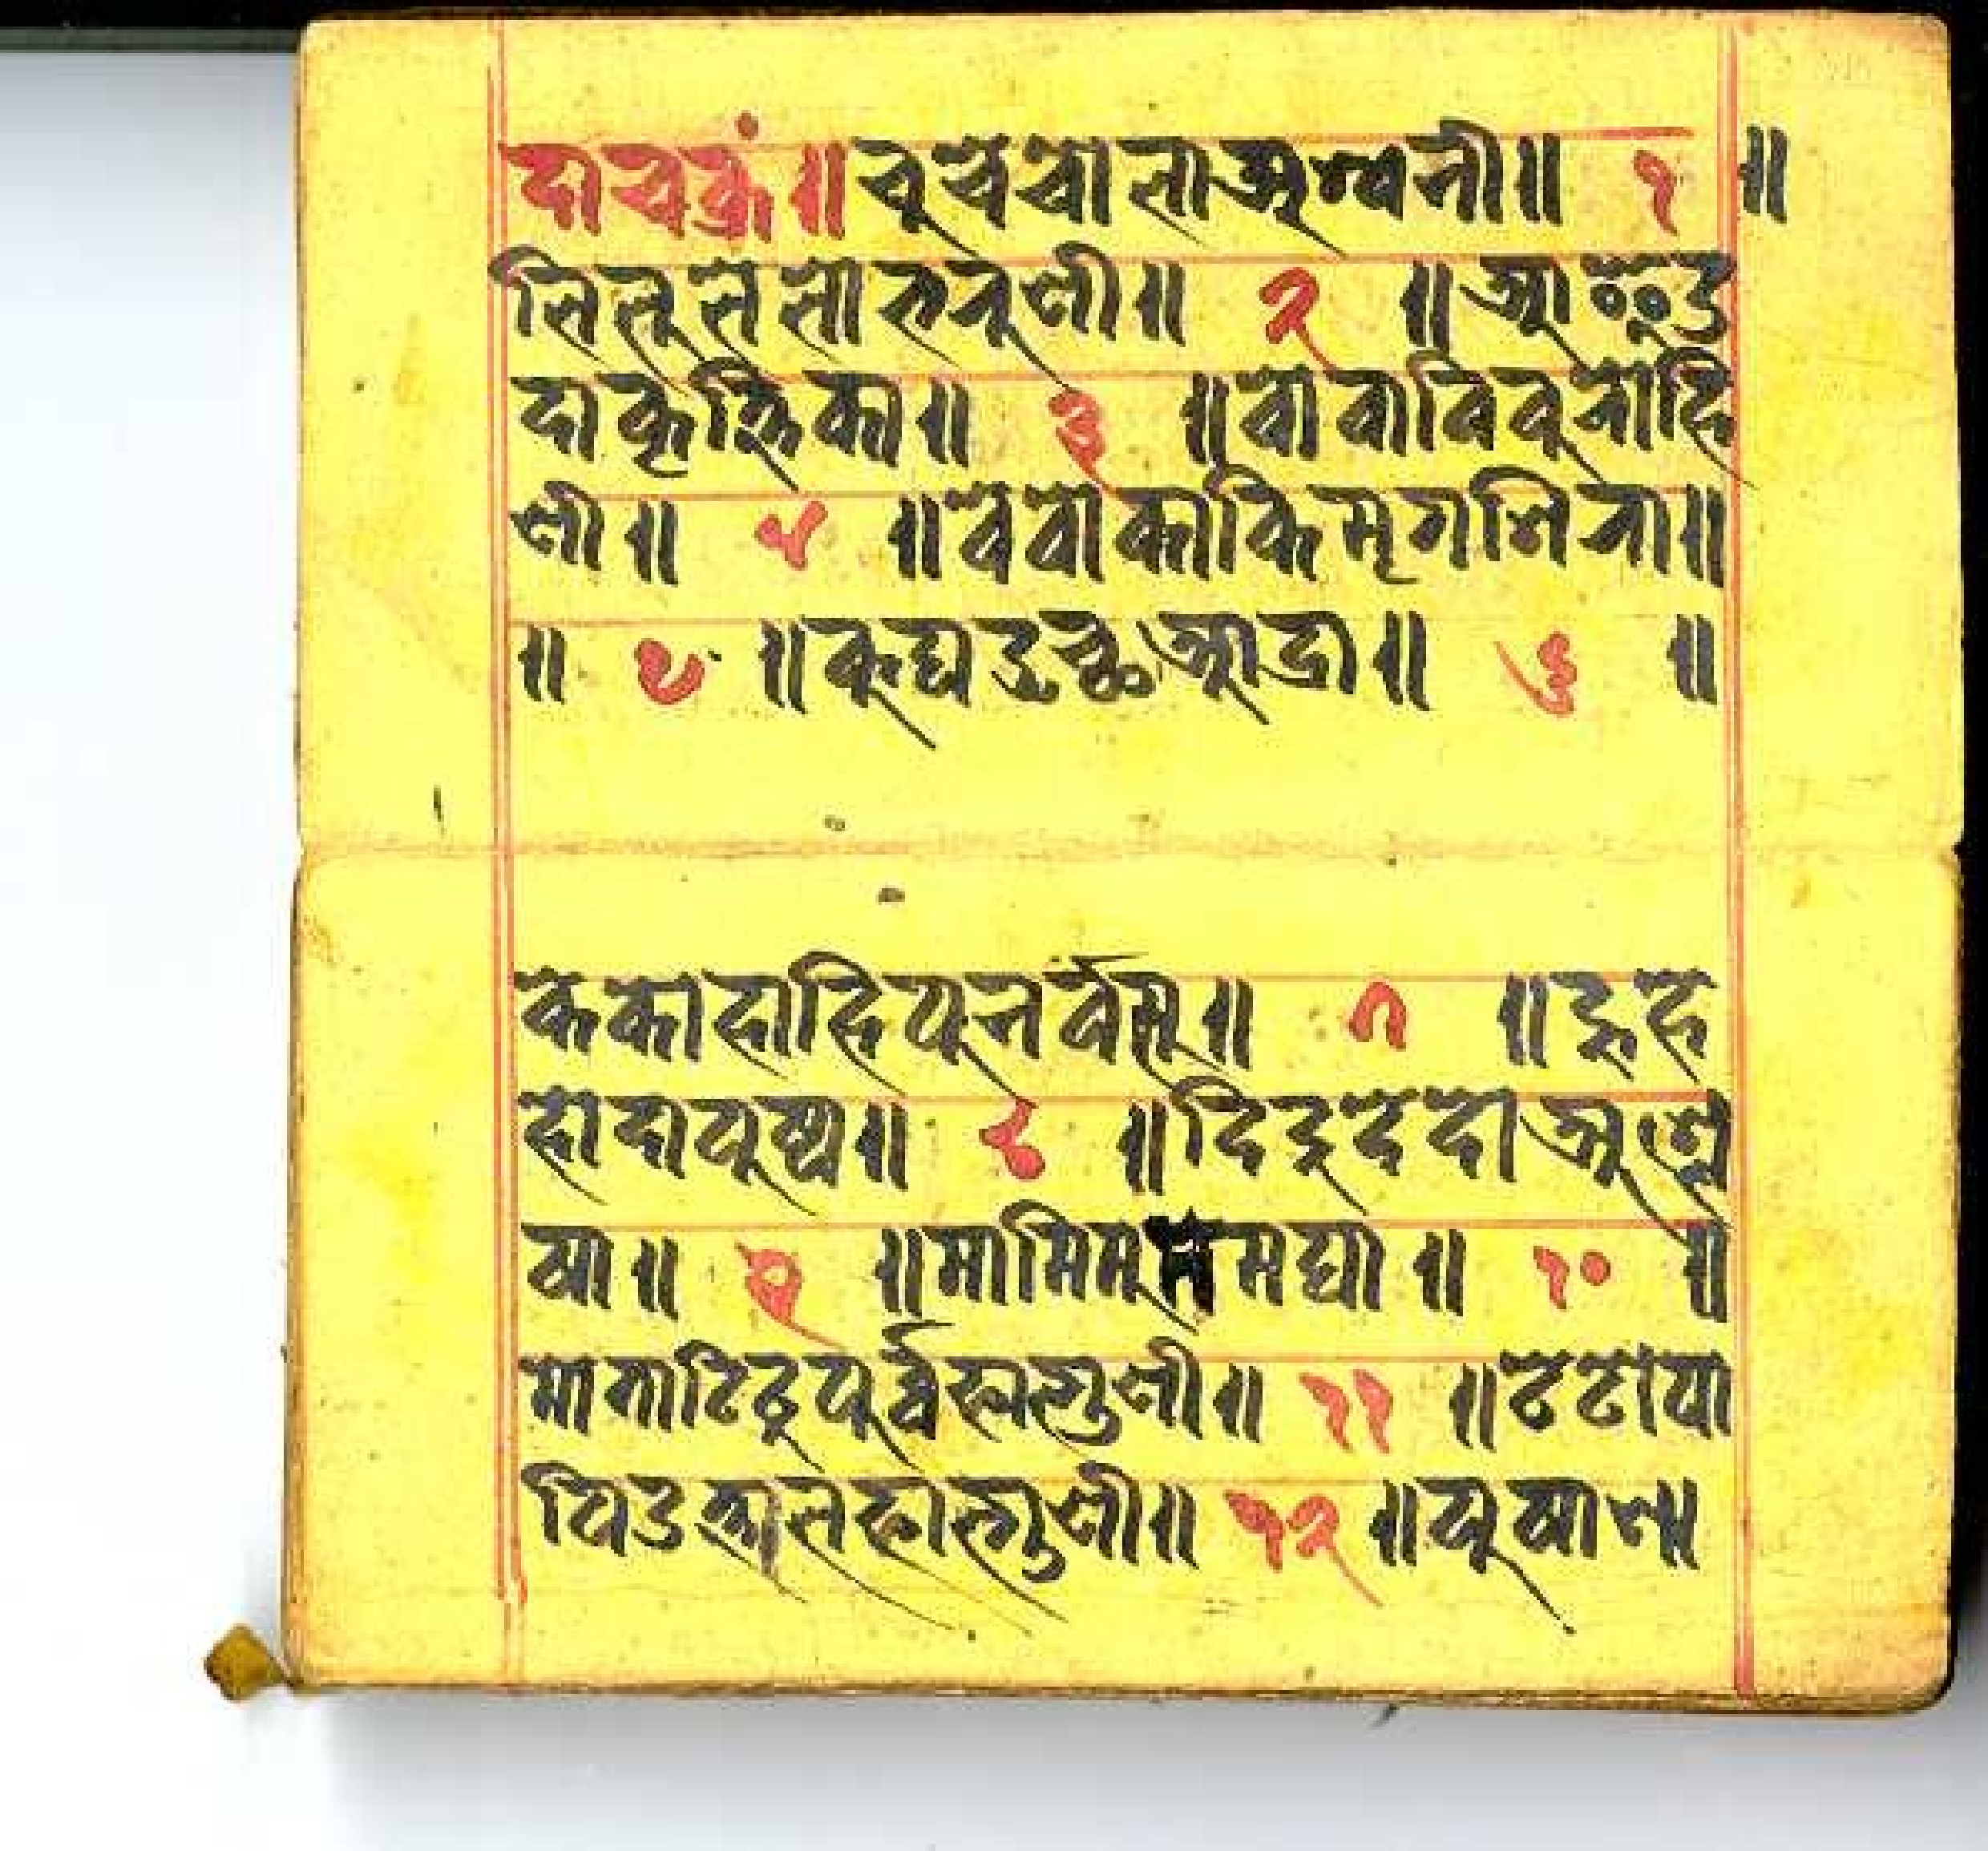 दाचक्रं॥चुचेचोलाअश्वनी॥ १ ॥
लिलुलेलोभरणी॥ २ ॥आईउ
दाकृत्तिका॥ ३ ॥वोवाविवुरोहि
णी॥ ४ ॥वेवोकाकिमृगशिरा॥
॥ ५ ॥कुघङछआद्रा॥ ६ ॥
केकोहाहिपुनर्वसु॥ ७ ॥हुहे
होदापुष्य॥ ८ ॥दिदुदेदोअश्ले
षा॥ ९ ॥मामिमुमघा॥ १० ॥
मोताटिटुपुर्वफाल्गुणी॥ ११ ॥टेटोपा
पिउ फाल्गुणी॥ १२ ॥पुषाणा